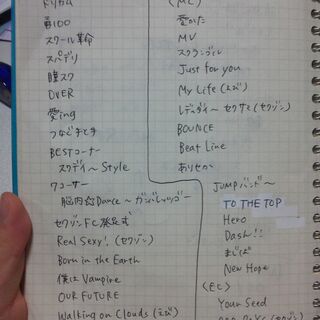 ドリカム
勇100
スクール革命
スパデリ
瞳スク
OVER
愛ing
つなぐ手と手
BESTコーナー
スクデイ〜Style
7コーナー
脳内☆Dance〜ガンバレッツゴー
セクゾンFC発足式
Real Sexy! (セクゾン)
Born in the Earth
僕はVampire
OUR FUTURE
Walking on Clouds (えび)
(MC)
愛かた
MV
スクランブル
Just for you
My Life (えび)
レディダイ〜セクサミ(セクゾン)
BOUNCE
Beat Line
ありせか
JUMPバンド〜
TO THE TOP
Hero
Dash!!
まじぱ
New Hope
Your Seed